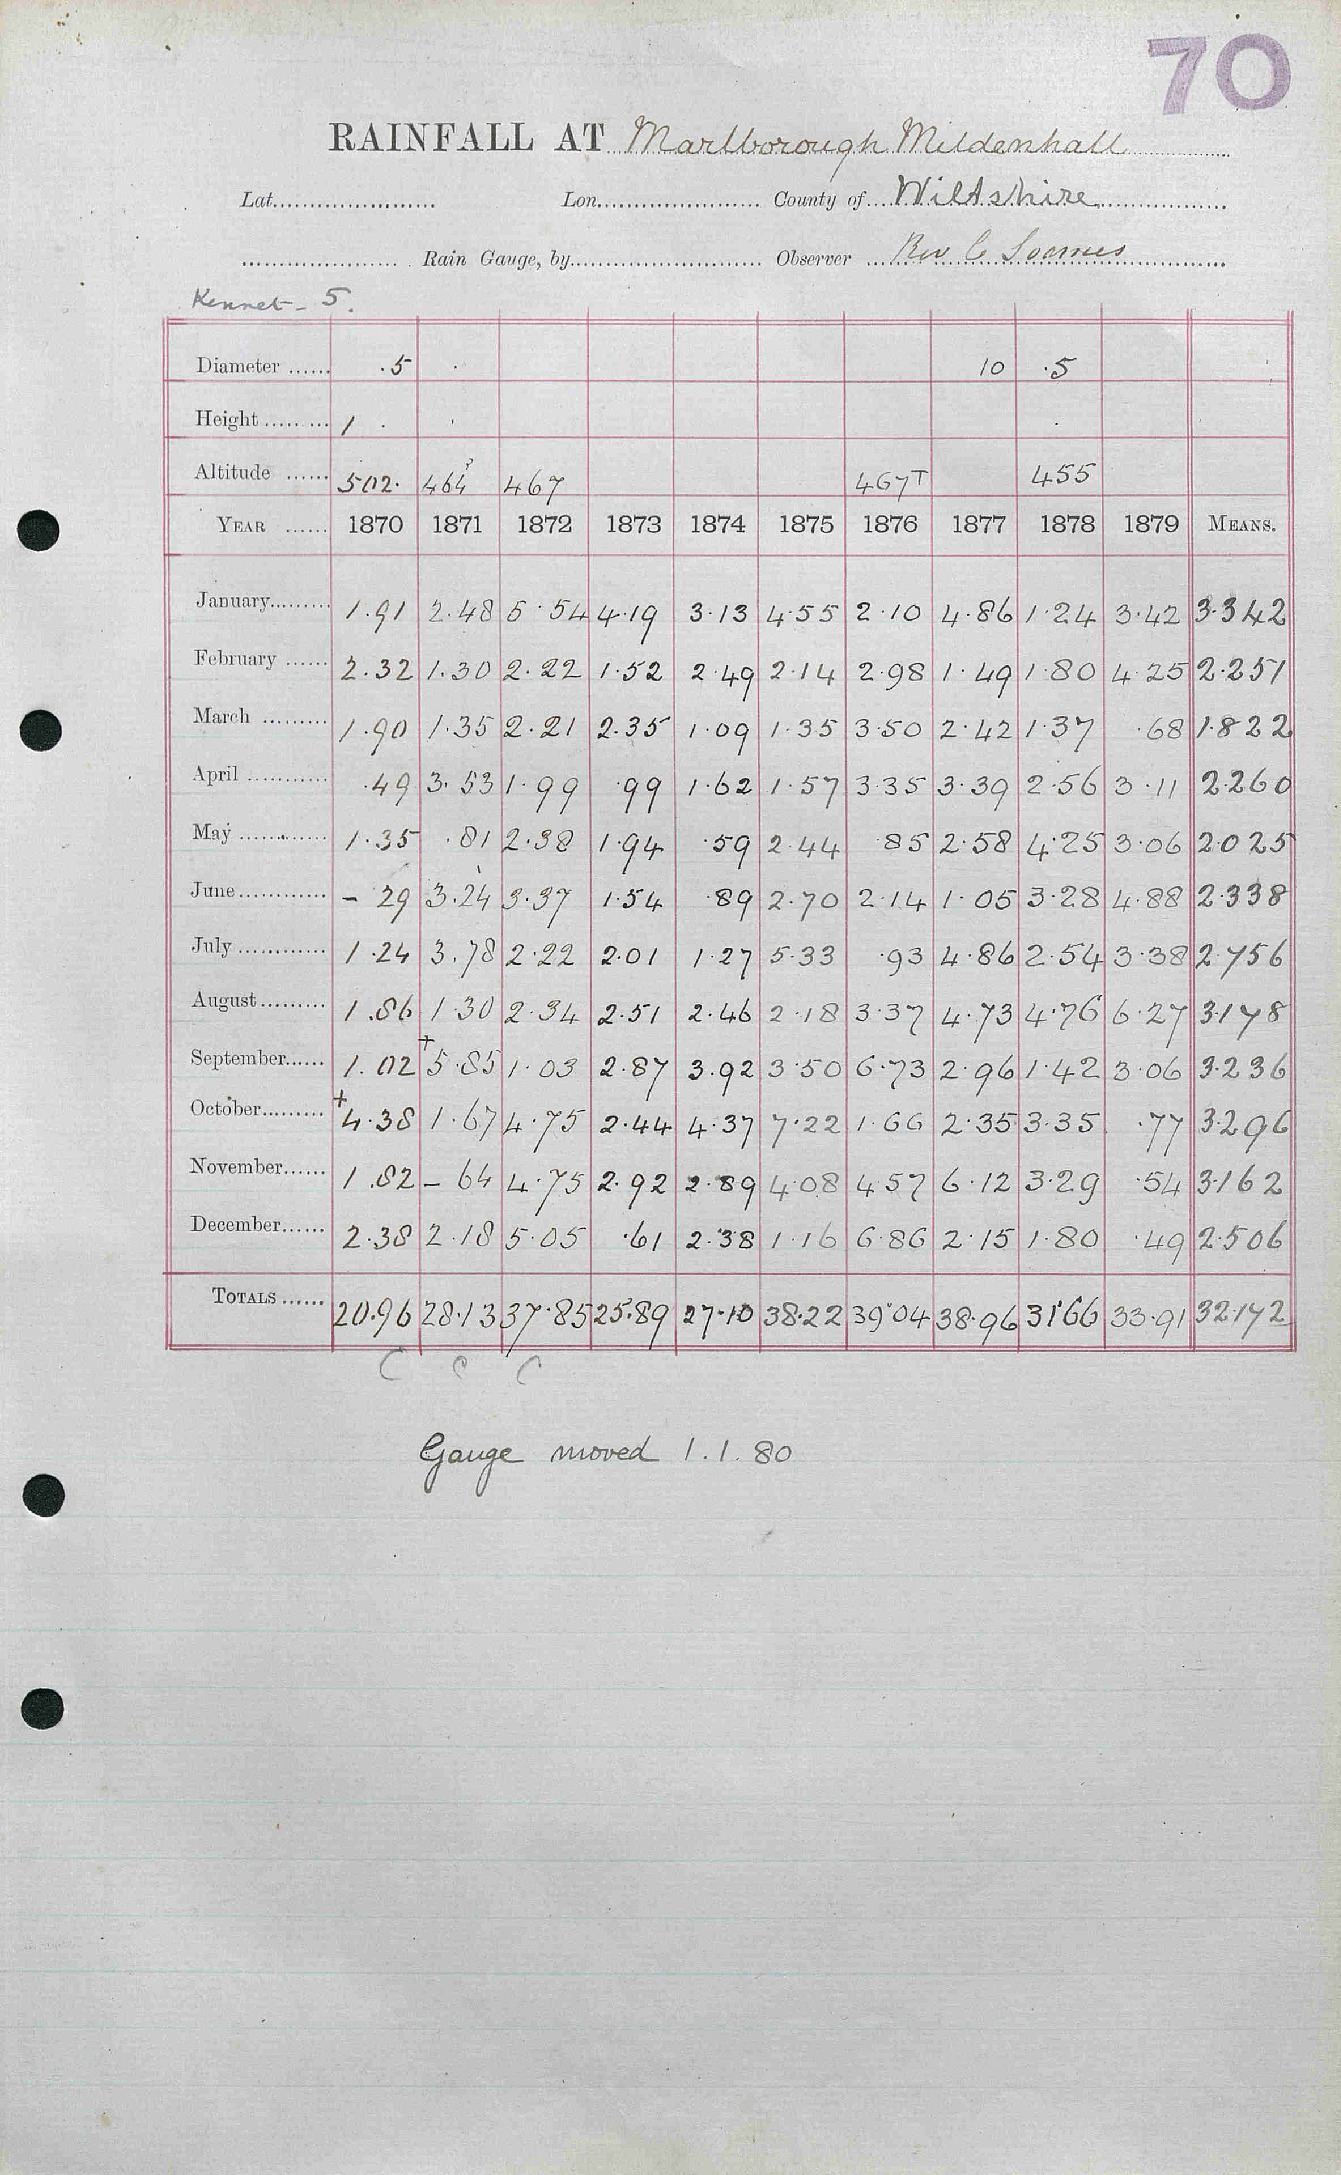 70
RAINFALL AT Marlborough Mildenhall
Lat. Lon. County of Wiltshire
Rain Gauge, by Observer Rev C Soames
Kennet - 5.
Diameter .5 10 .5
Height 1
Altitude 502. 464? 467 467T 455
YEAR 1870 1871 1872 1873 1874 1875 1876 1877 1878 1879 MEANS.
January 1.91 2.48 5.54 4.19 3.13 4.55 2.10 4.86 1.24 3.42 3.342
February 2.32 1.30 2.22 1.52 2.49 2.14 2.98 1.49 1.80 4.25 2.251
March 1.90 1.35 2.21 2.35 1.09 1.35 3.50 2.42 1.37 .68 1.822
April .49 3.53 1.99 .99 1.62 1.57 3.35 3.39 2.56 3.11 2.260
May 1.35 .81 2.38 1.94 .59 2.44 .85 2.58 4.25 3.06 2.025
June - 29 3.24 3.37 1.54 .89 2.70 2.14 1.05 3.28 4.88 2.338
July 1.24 3.78 2.22 2.01 1.27 5.33 .93 4.86 2.54 3.38 2.756
August 1.86 1.30 2.34 2.51 2.46 2.18 3.37 4.73 4.76 6.27 3.178
September 1.02 +5.85 1.03 2.87 3.92 3.50 6.73 2.96 1.42 3.06 3.236
October +4.38 1.67 4.75 2.44 4.37 7.22 1.66 2.35 3.35 .77 3.296
November 1.82 - 64 4.75 2.92 2.89 4.08 4.57 6.12 3.29 .54 3.162
December 2.38 2.18 5.05 .61 2.38 1.16 6.86 2.15 1.80 .49 2.506
TOTALS 20.96 28.13 37.85 25.89 27.10 38.22 39.04 38.96 31.66 33.91 32.172
C C C
Gauge moved 1.1.80